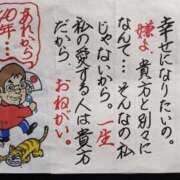 幸せになりたいの。
嫌よ、貴方と別々に
なんて…そんなの私
じゃないから。一生
私の愛する人は貴方
だから、おねがい。
あれから
40年…